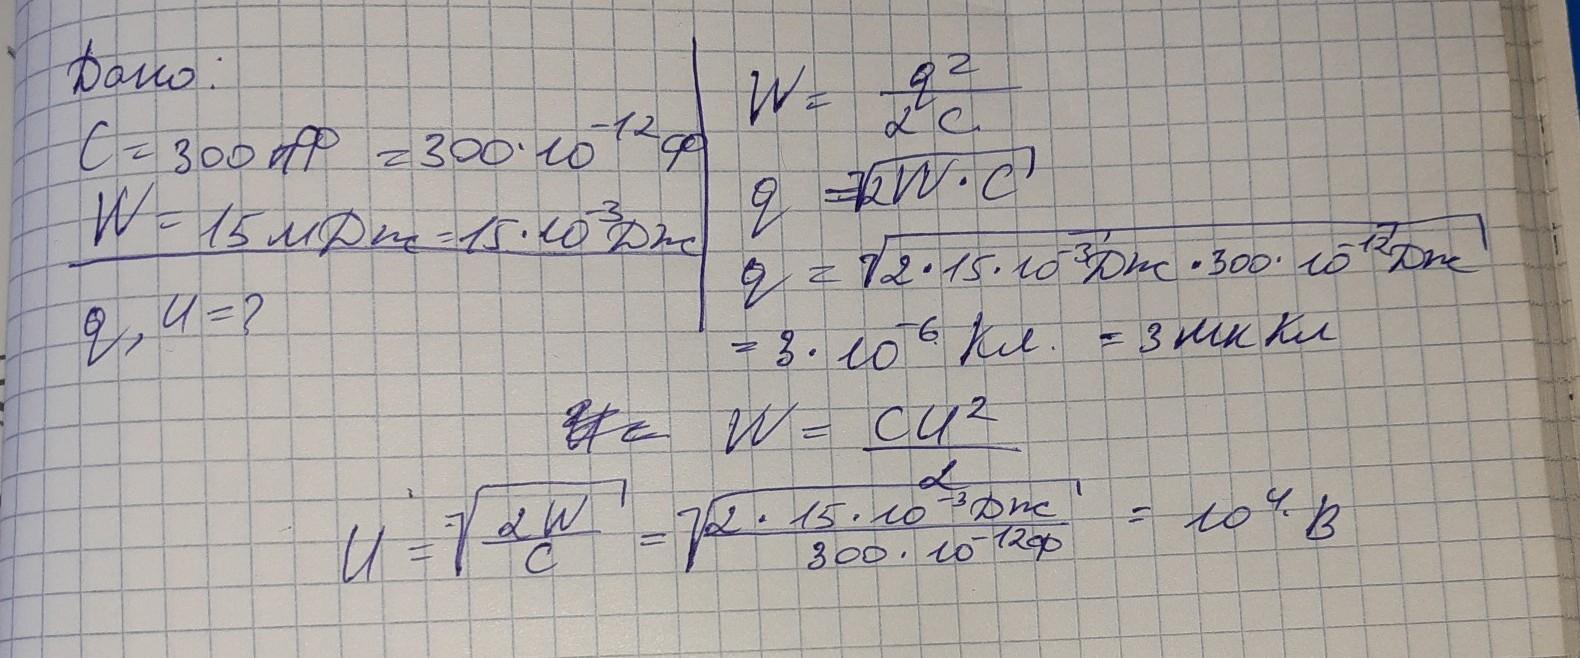 Дано:
C = 300 пФ = 300·10⁻¹² Ф
W = 15 мДж = 15·10⁻³ Дж
q, U = ?
W = q²/2C
q = √(2W·C)
q = √(2·15·10⁻³ Дж·300·10⁻¹² Дж)
= 3·10⁻⁶ Кл. = 3 мк Кл
W = CU²/2
U = √(2W/C) = √(2·15·10⁻³ Дж/300·10⁻¹² Ф) = 10⁴ В